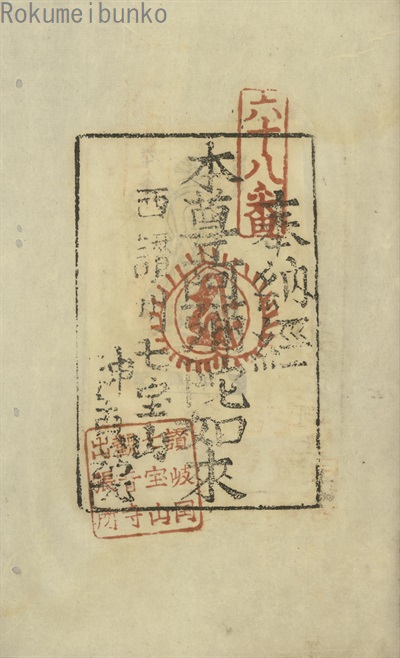 Rokumeibunko
六十八番
奉納經
本尊阿弥陀如来
西讃州七宝山
神宮寺
讃岐国
七宝山
観音寺
出張所